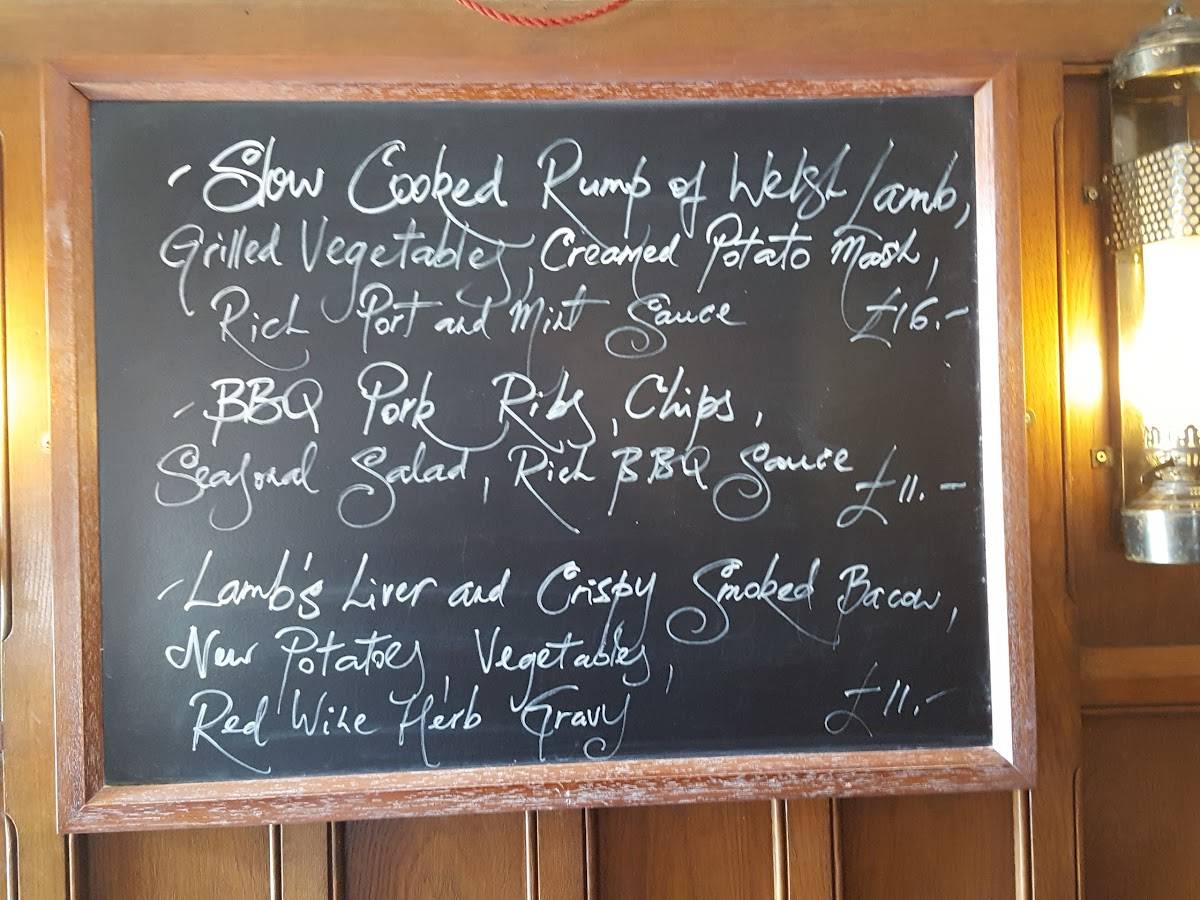 - Slow Cooked Rump of Welsh Lamb,
Grilled Vegetables, Creamed Potato Mash,
Rich Port and Mint Sauce £16.-
- BBQ Pork Ribs, Chips,
Seasonal Salad, Rich BBQ Sauce £11.-
- Lamb's Liver and Crispy Smoked Bacon,
New Potatoes, Vegetables,
Red Wine Herb Gravy £11.-